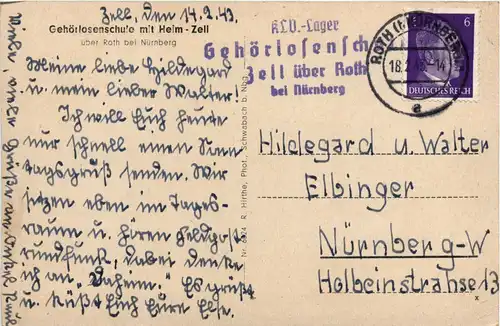 Zell, den 14.2.43.
Gehörlosenschule mit Heim - Zell
über Roth bei Nürnberg
Meine liebe Hildegard
u. mein lieber Walter!
Ich will Euch heute
nur schnell einen Sonn
tagsgruß senden. Wir
sitzen eben im Tages-
raum u. hören Feldpost
rundfunk. Dabei denke
ich an „Daheim". Es grüßt
u. küßt Euch Eure Else.
Viele, viele Grüße an Onkel
Nr. 6824 R. Hirthe, Phot., Schwabach b. Nbg.
KLV.-Lager
Gehörlosensch
Zell über Roth
bei Nürnberg
ROTH (b. NÜRNBERG)
18.2.43.-14
a
6
DEUTSCHES REICH
Hildegard u. Walter
Elbinger
Nürnberg-W
Holbeinstrahse 13
x